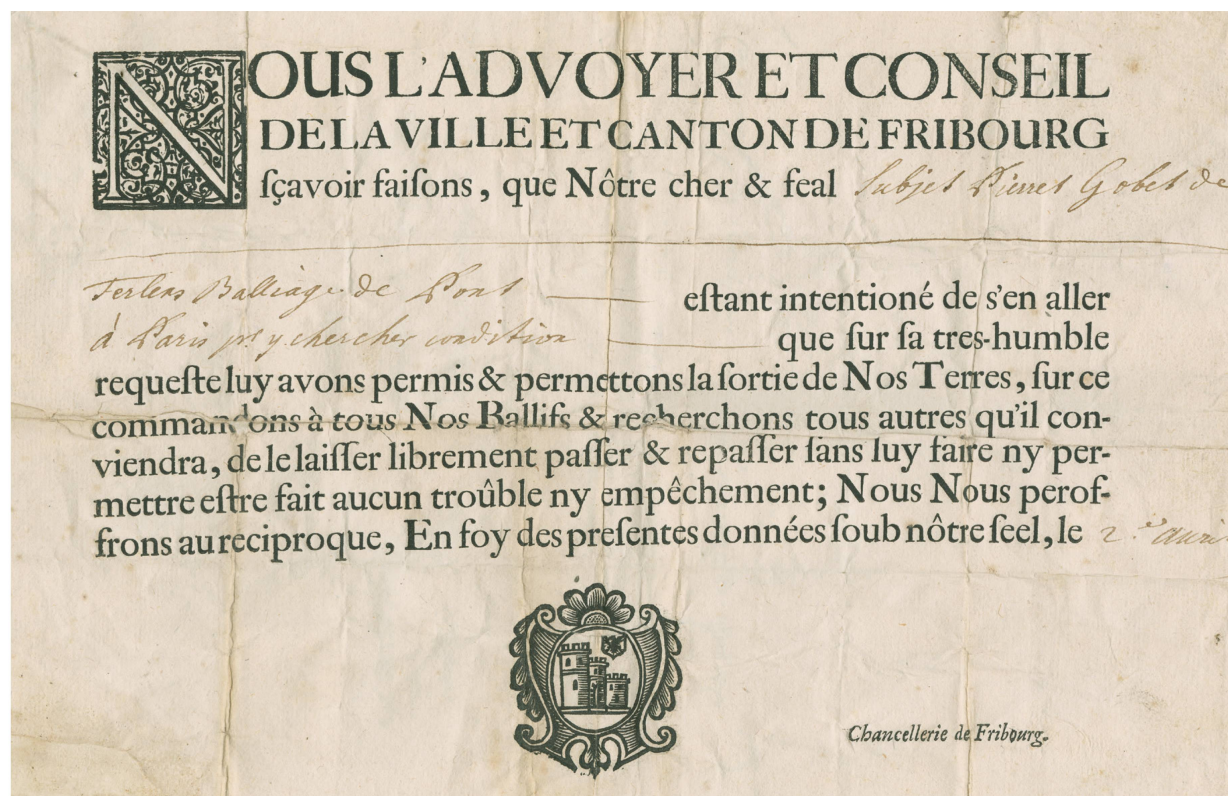 NOUS L'ADVOYER ET CONSEIL
DE LA VILLE ET CANTON DE FRIBOURG
sçavoir faisons, que Nôtre cher & feal Subjet Pierret Gobet de
Ferlens Balliage de Pont estant intentioné de s'en aller
à Paris pr y chercher condition que sur sa tres-humble
requeste luy avons permis & permettons la sortie de Nos Terres, sur ce
commandons à tous Nos Ballifs & recherchons tous autres qu'il con-
viendra, de le laisser librement passer & repasser sans luy faire ny per-
mettre estre fait aucun troûble ny empêchement; Nous Nous perof-
frons au reciproque, En foy des presentes données soub nôtre seel, le 2.e
Chancellerie de Fribourg.